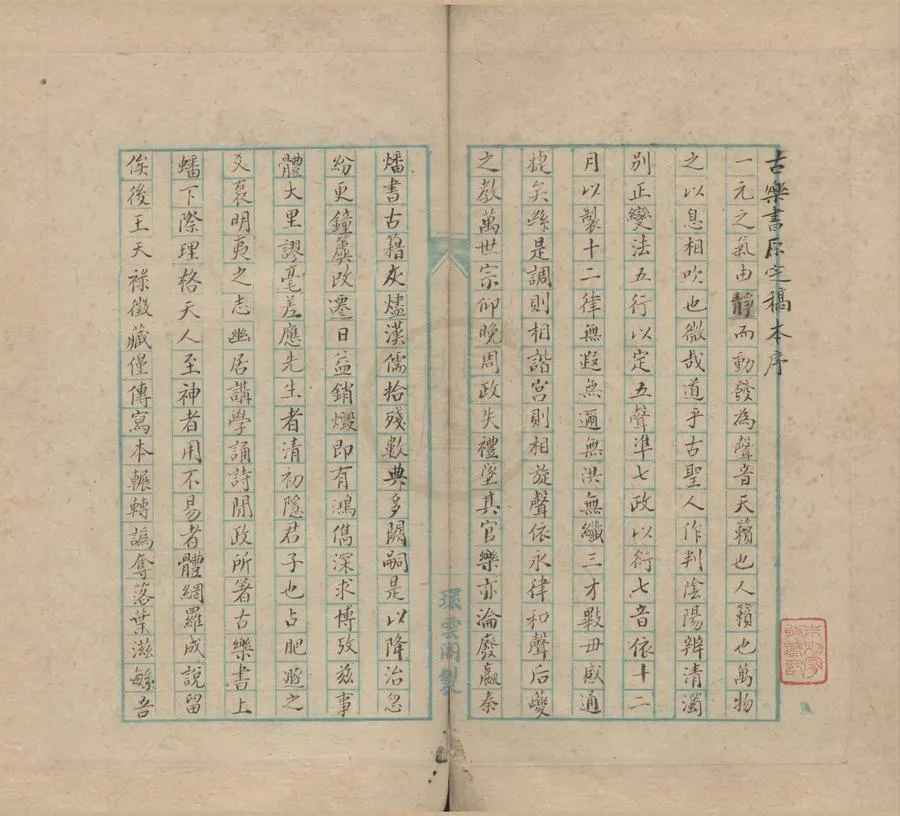 古樂書原定稿本序
一元之氣由靜而動發為聲音天籟也人籟也萬物
之以息相吹也微哉道乎古聖人作判陰陽辨清濁
別正變法五行以定五聲準七政以衍七音依十二
月以製十二律無遐無邇無洪無纖三才斁毌感通
捷矣繇是調則相諧宮則相旋聲依永律和聲后夔
之教萬世宗仰晚周政失禮墜其官樂亦淪廢嬴秦
燔書古籍灰燼漢儒拾殘數典多闕嗣是以降治忽
紛更鐘簴改遷日益銷燬即有鴻儁深求博攷茲事
體大里謬毫差應先生者清初隱君子也占肥遯之
爻裒明夷之志幽居講學誦詩聞政所著古樂書上
蟠下際理格天人至神者用不易者體網羅成說留
俟後王天祿徵藏僅傳寫本輾轉譌奪落葉滋緐吾
環雲閣製